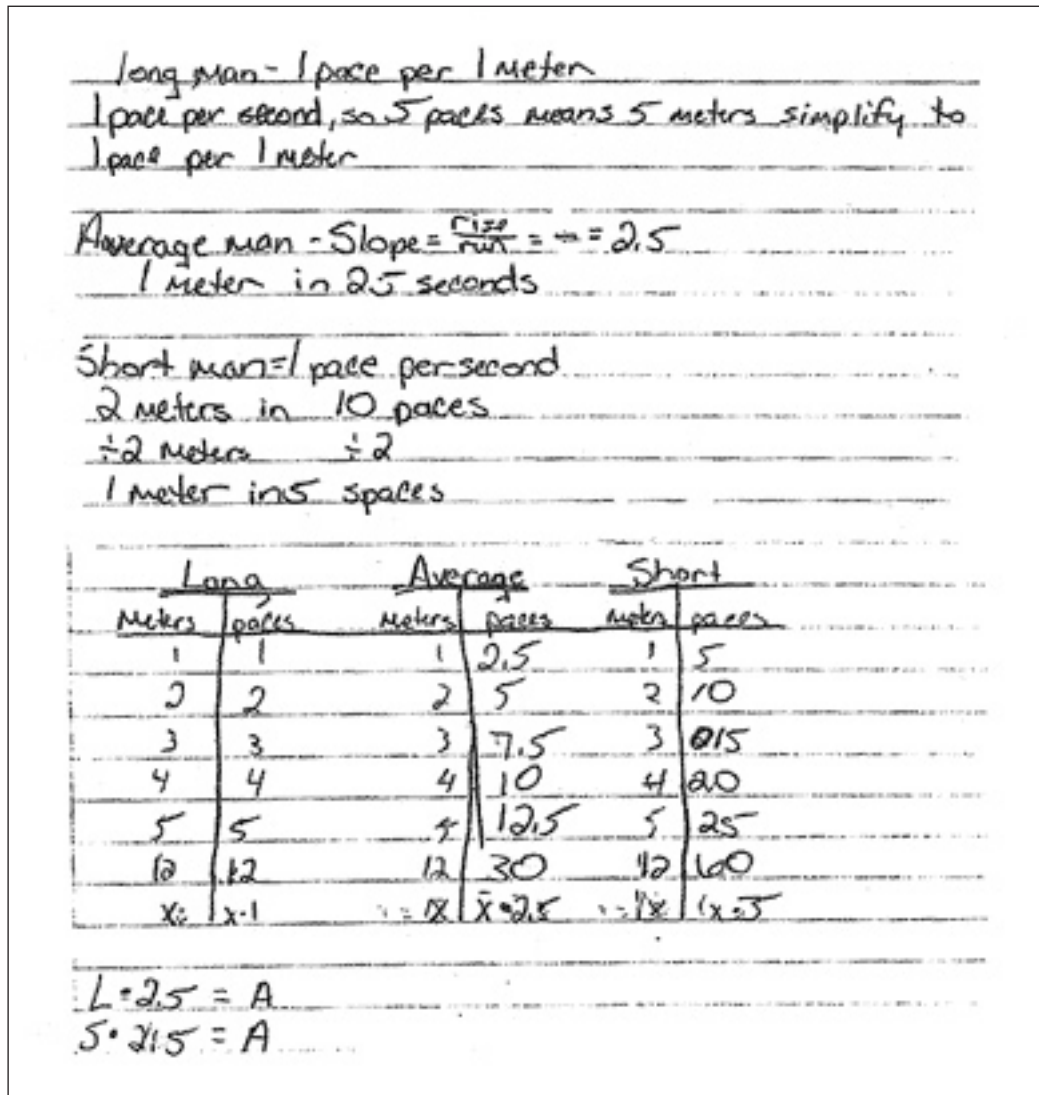 long man - 1 pace per 1 meter
1 pace per second, so 5 paces means 5 meters simplify to
1 pace per 1 meter
Average man - Slope = rise/run = = 2.5
1 meter in 2.5 seconds
Short man = 1 pace per second
2 meters in 10 paces
÷2 meters ÷2
1 meter in 5 spaces
Long Average Short
Meters paces Meters paces Meters paces
1 1 1 2.5 1 5
2 2 2 5 2 10
3 3 3 7.5 3 15
4 4 4 10 4 20
5 5 5 12.5 5 25
12 12 12 30 12 60
x x·1 x x·2.5 x x·5
L·2.5 = A